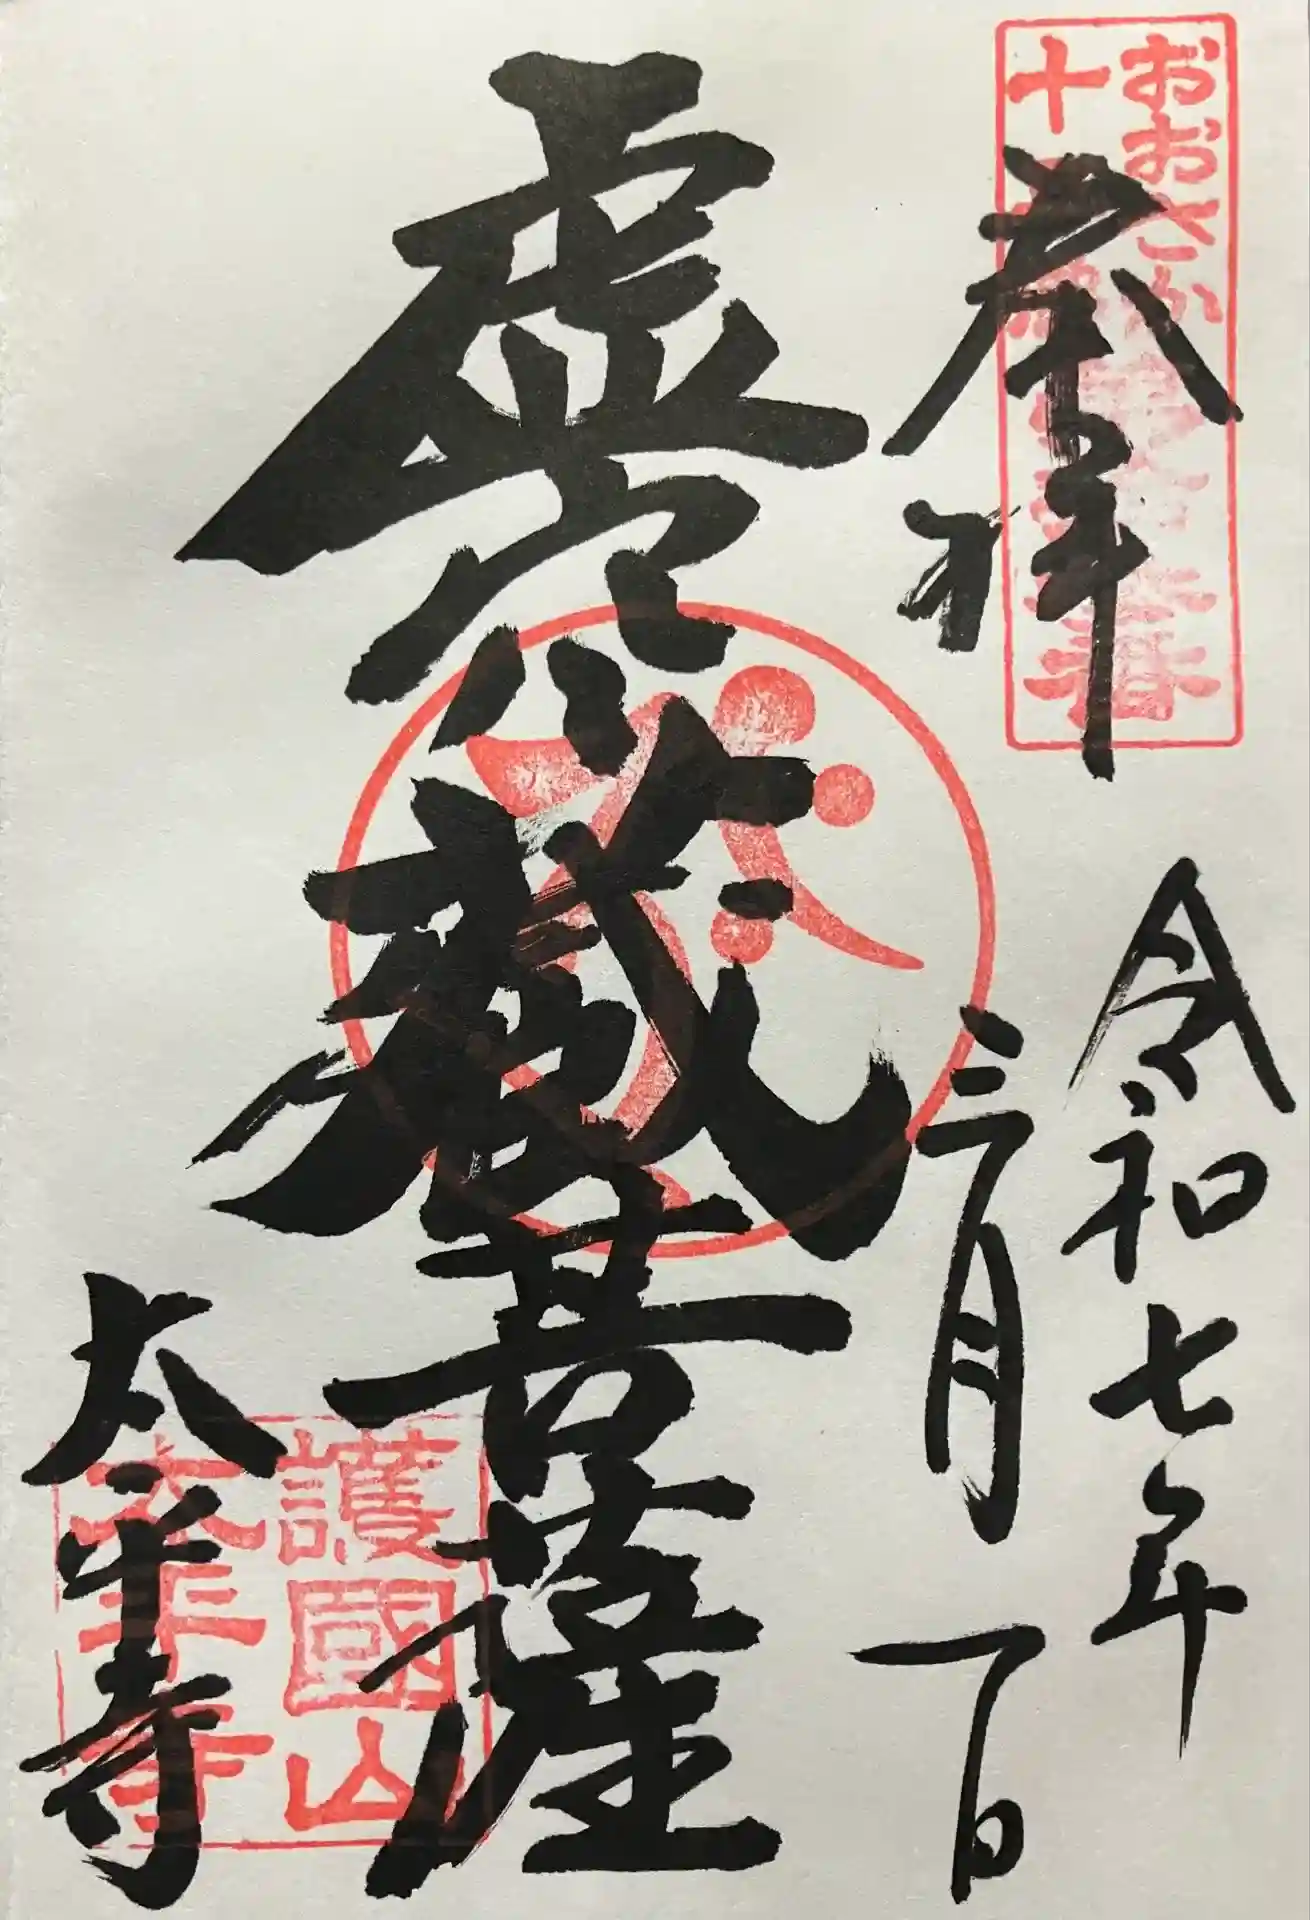 おおさか
十三
奉拝
令和七年
三月一日
虚空蔵菩薩
護國山
太平寺
太平寺